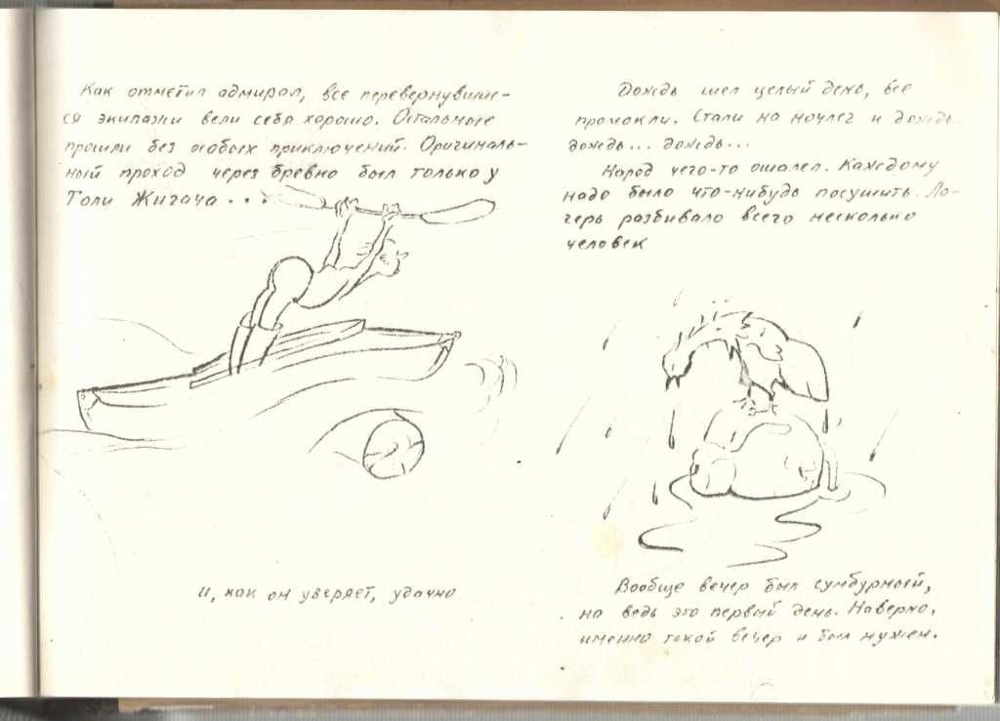 Как отметил адмирал, все перевернувшие-
ся экипажи вели себя хорошо. Остальные
прошли без особых приключений. Оригиналь-
ный проход через бревно был только у
Толи Жигача...
и, как он уверяет, удачно
Дождь шел целый день, все
промокли. Стали на ночлег и дождь..
дождь... дождь...
Народ чего-то ошалел. Каждому
надо было что-нибудь посушить. Ла-
герь разбивало всего несколько
человек
Вообще вечер был сумбурный,
но ведь это первый день. Наверно,
именно такой вечер и был нужен.